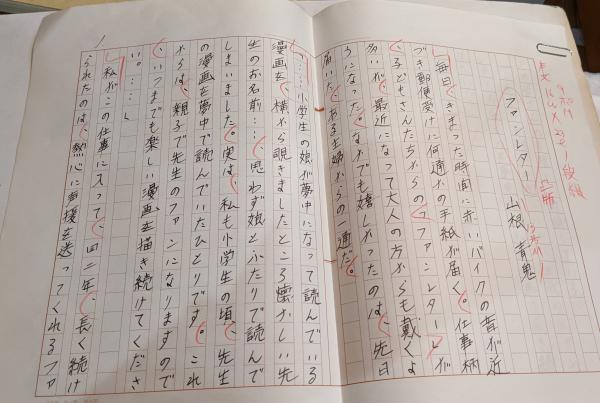 ファンレター
山根 青鬼
毎日、きまった時間に赤いバイクの音が近
づき郵便受けに何通かの手紙が届く。仕事柄
、子どもさんたちからの「ファンレター」が
多いが、最近になって大人の方からも戴くよ
うになった。なかでも嬉しかったのは、先日
届いた、ある主婦からの一通だ。
「……小学生の娘が夢中になって読んでいる
漫画を、横から覗きましたところ懐かしい先
生のお名前…、思わず娘とふたりで読んで
しまいました。実は、私も小学生の頃、先生
の漫画を夢中で読んでいたひとりです。これ
からは、親子で先生のファンになりますので
、いつまでも楽しい漫画を描き続けてくださ
い。……」
私がこの仕事に入って、四二年、長く続け
られたのは、熱心に声援を送ってくれるファ
1